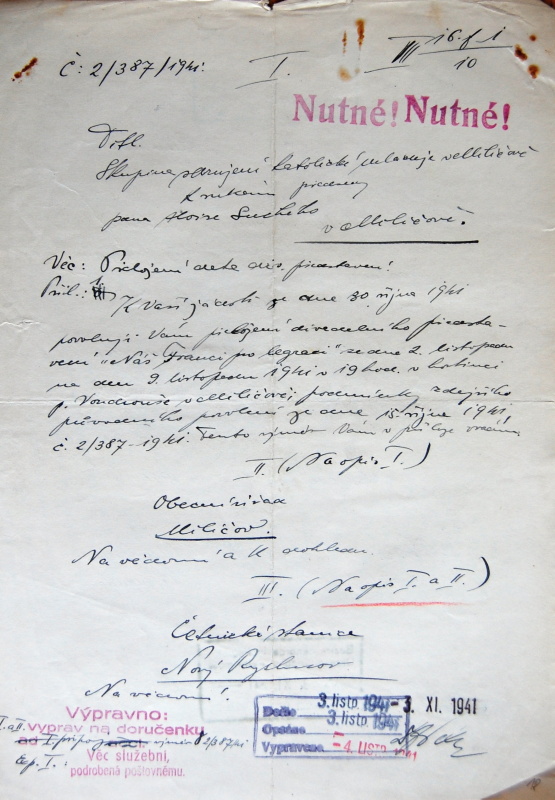 Č: 2/387/1941.
I.
III 16. I 1
10
Nutné! Nutné!
Skupina sdružení katolické mládeže v Miličově
k rukám
pana Aloise Suchého
v Miličově.
Věc: Přeložení data div. představení.
Příl.: 1
K Vaší žádosti ze dne 30. října 1941
povoluji Vám přeložení divadelního předsta-
vení "Náš Franci po legraci" se dne 2. listopadu
na den 9. listopadu 1941 v 19 hod. v hostinci
p. Vondrouše v Miličově, podmínky zdejšího
původního povolení ze dne 15. října 1941,
č. 2/387-1941. Tento výměr Vám v příloze vracím.
II. (Na opis I.)
Obecní úřad
Miličov.
Na vědomí a k dohledu.
III. (Na opis I. a II.)
Četnická stanice
Nový Rychnov
Na vědomí.
Výpravno:
I. a II. vyprav na doručenku
2/387/41
Věc služební,
podrobená poštovnému.
čep. I.:
Došlo 3. listo 1941 - 3. XI. 1941
Opsáno 3. listo 1941
Vypraveno - 4. LISTO 1941